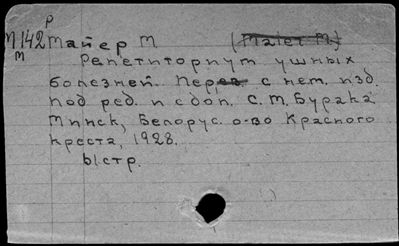 р
М142 Майер М (Maier M.)
м
Репетиториум ушных
болезней. Перев. с нем. изд.
под ред. и с доп. С. М. Бурака
Минск, Белорус. о-во Красного
креста, 1928.
стр.